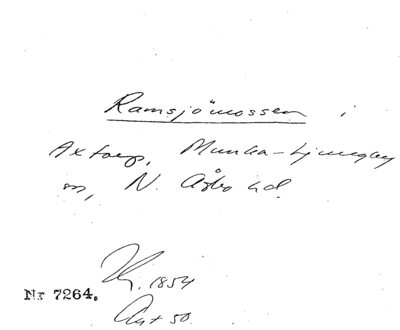 Ramsjömossen i
Axtorp, Munka-Ljungby
sn, N. Åsbo hd.
1854
Nr 7264.
Akt 50